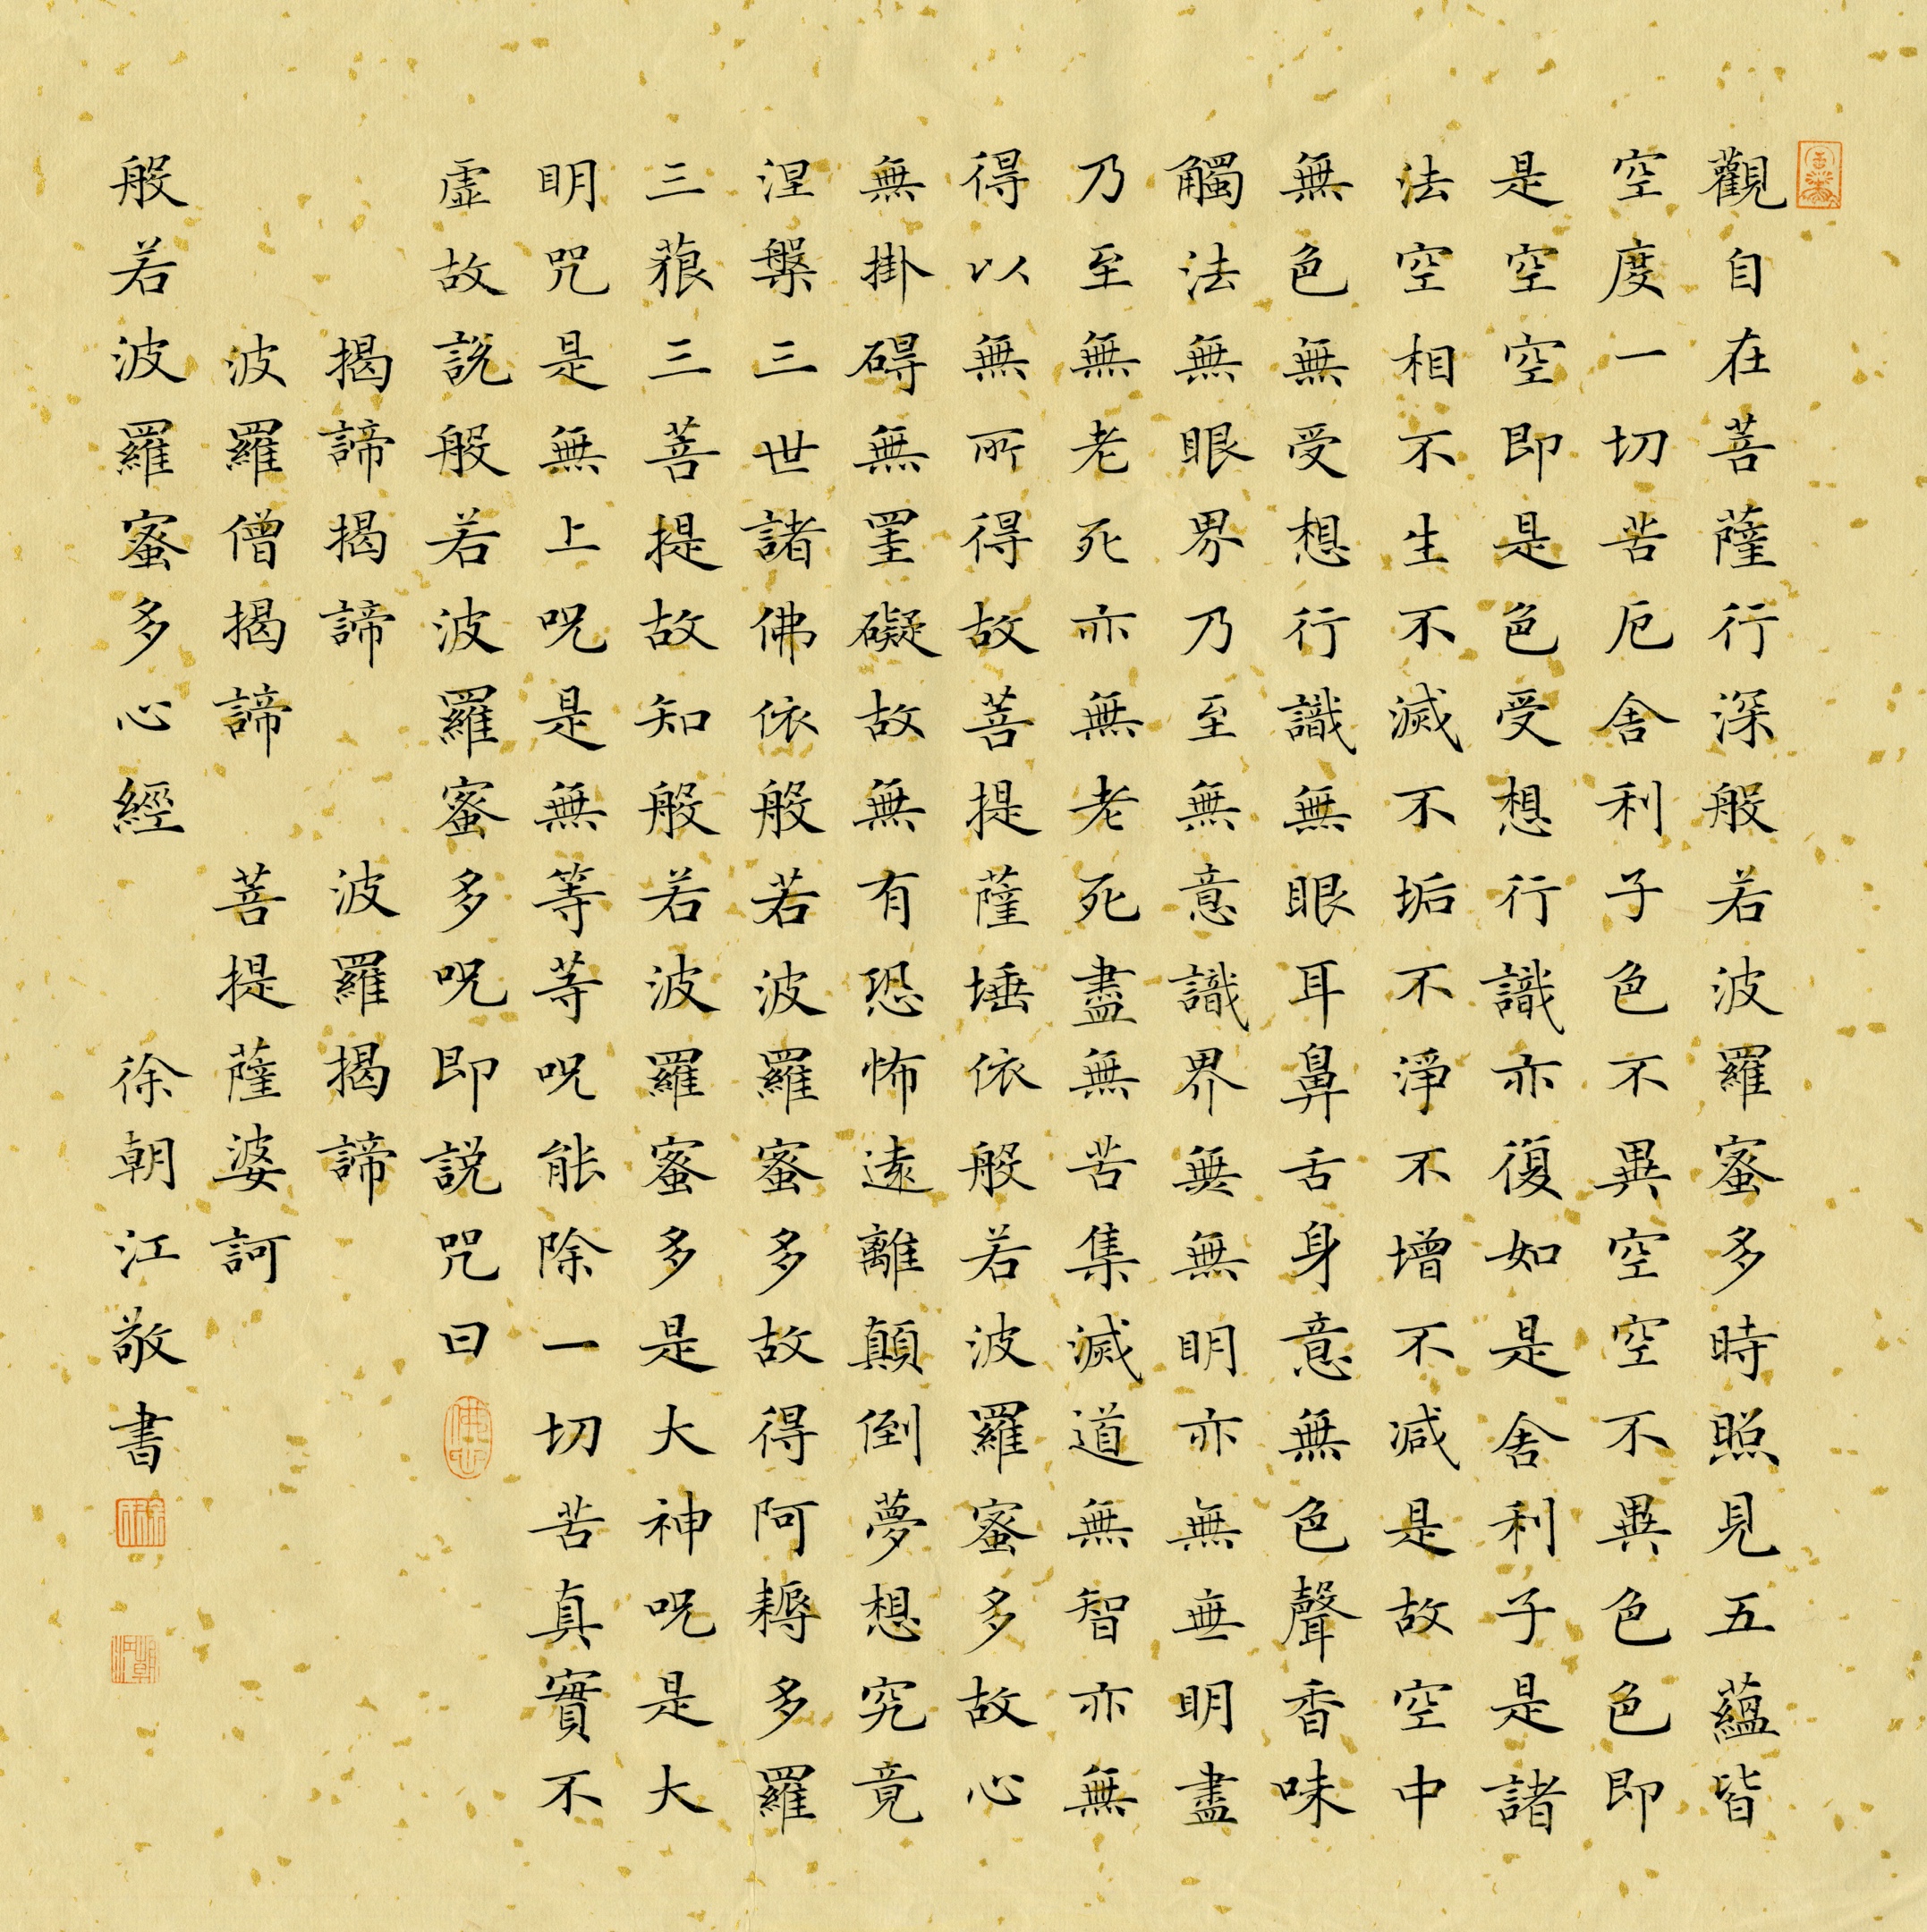 觀自在菩薩行深般若波羅蜜多時照見五蘊皆
空度一切苦厄舍利子色不異空空不異色色即
是空空即是色受想行識亦復如是舍利子是諸
法空相不生不滅不垢不淨不增不減是故空中
無色無受想行識無眼耳鼻舌身意無色聲香味
觸法無眼界乃至無意識界無無明亦無無明盡
乃至無老死亦無老死盡無苦集滅道無智亦無
得以無所得故菩提薩埵依般若波羅蜜多故心
無掛碍無罣礙故無有恐怖遠離顛倒夢想究竟
涅槃三世諸佛依般若波羅蜜多故得阿耨多羅
三藐三菩提故知般若波羅蜜多是大神咒是大
明咒是無上咒是無等等咒能除一切苦真實不
虛故說般若波羅蜜多咒即說咒曰
佛心
揭諦揭諦 波羅揭諦
波羅僧揭諦 菩提薩婆訶
般若波羅蜜多心經 徐朝江敬書